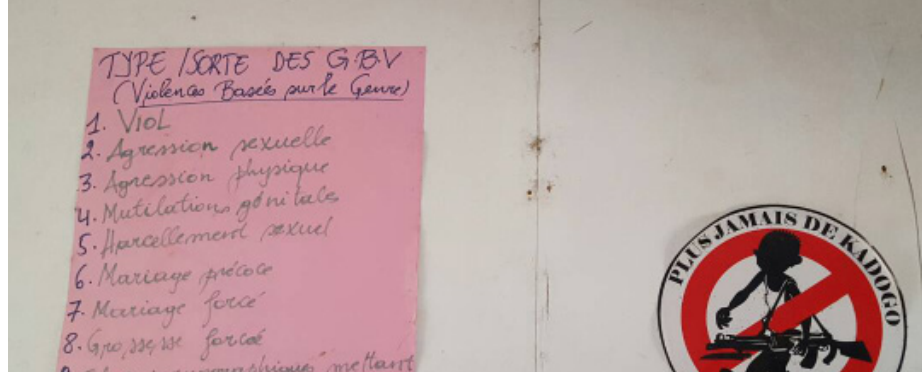 TYPE / SORTE DES G.B.V
(Violences Basées sur le Genre)
1. VIOL
2. Agression sexuelle
3. Agression physique
4. Mutilations génitales
5. Harcellement sexuel
6. Mariage précoce
7. Mariage forcé
8. Grossesse forcée
mettant
PLUS JAMAIS DE KADOGO